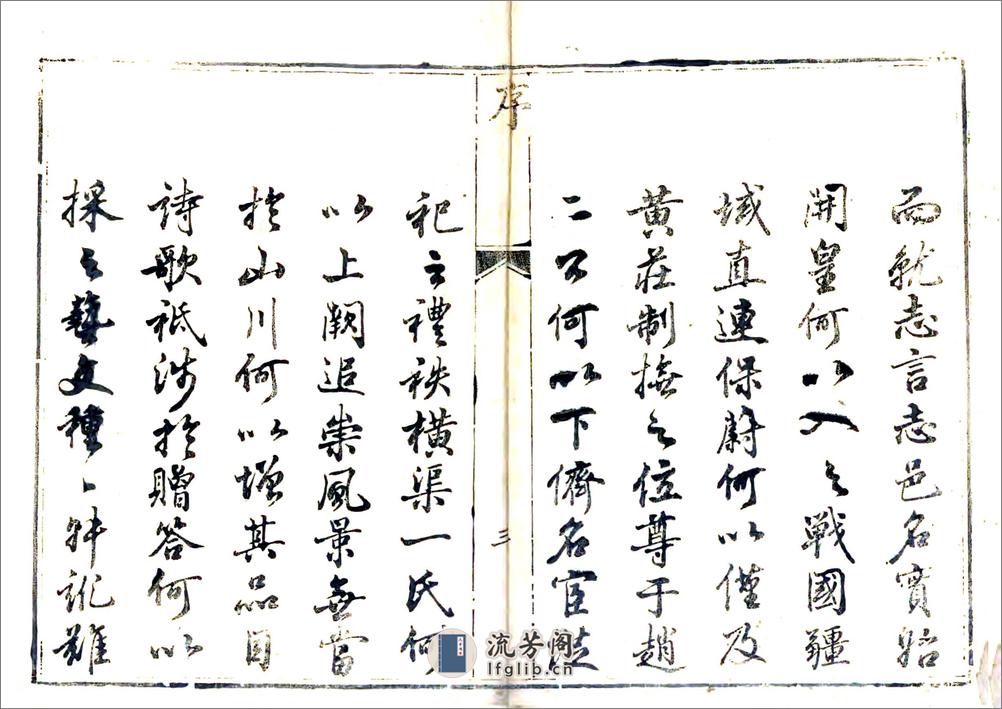 而就志言志邑名實始
開皇何以入之戰國疆
域直連保蔚何以僅及
黃莊制撫之位尊于趙
二公何以下儕名宦從
序
三
祀之禮秩橫渠一氏何
以上闕追崇風景無當
於山川何以增其品目
詩歌祇涉於贈答何以
採之藝文種〻舛訛難
流芳阁
lfglib.cn